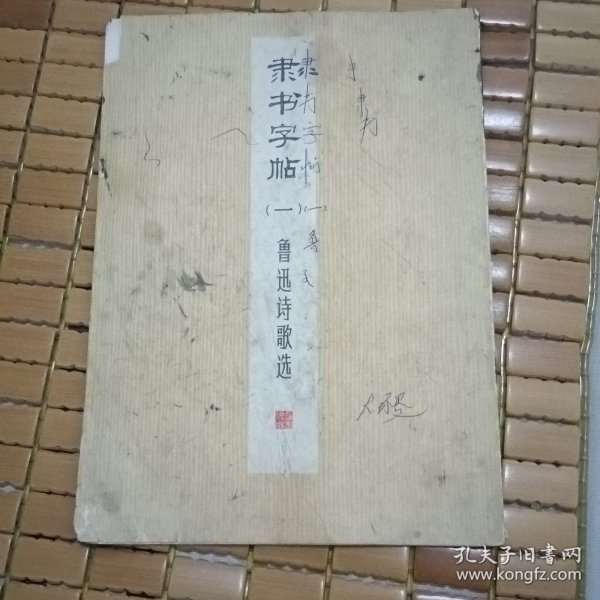 隶书字帖
（一）
鲁迅诗歌选
隶书字帖（一）鲁
孔夫子旧书网
www.kongfz.com